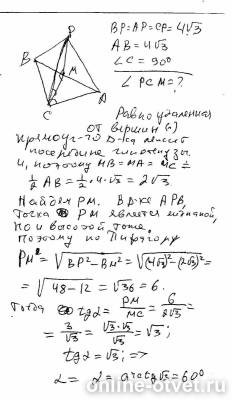 P
B
M
A
C
BP=AP=CP=4√3
AB=4√3
∠C=90°
∠PCM=?
Равноудаленная
от вершин (.)
прямоуг-го Δ-ка лежит
посередине гипотенузы.
и, поэтому MB=MA=MC=
½ AB=½·4·√3=2√3
Найдем PM. В Δ-ке APB,
Точка PM является медианой,
но и высотой тоже.
Поэтому по Пифагору
PM=√BP²-BM²=√(4√3)²-(2√3)²=
=√48-12=√36=6.
Тогда tgα=PM/MC=6/2√3=
=3/√3=√3·√3/√3=√3;
tgα=√3; =>
α=arctg√3=60°
online-otvet.ru